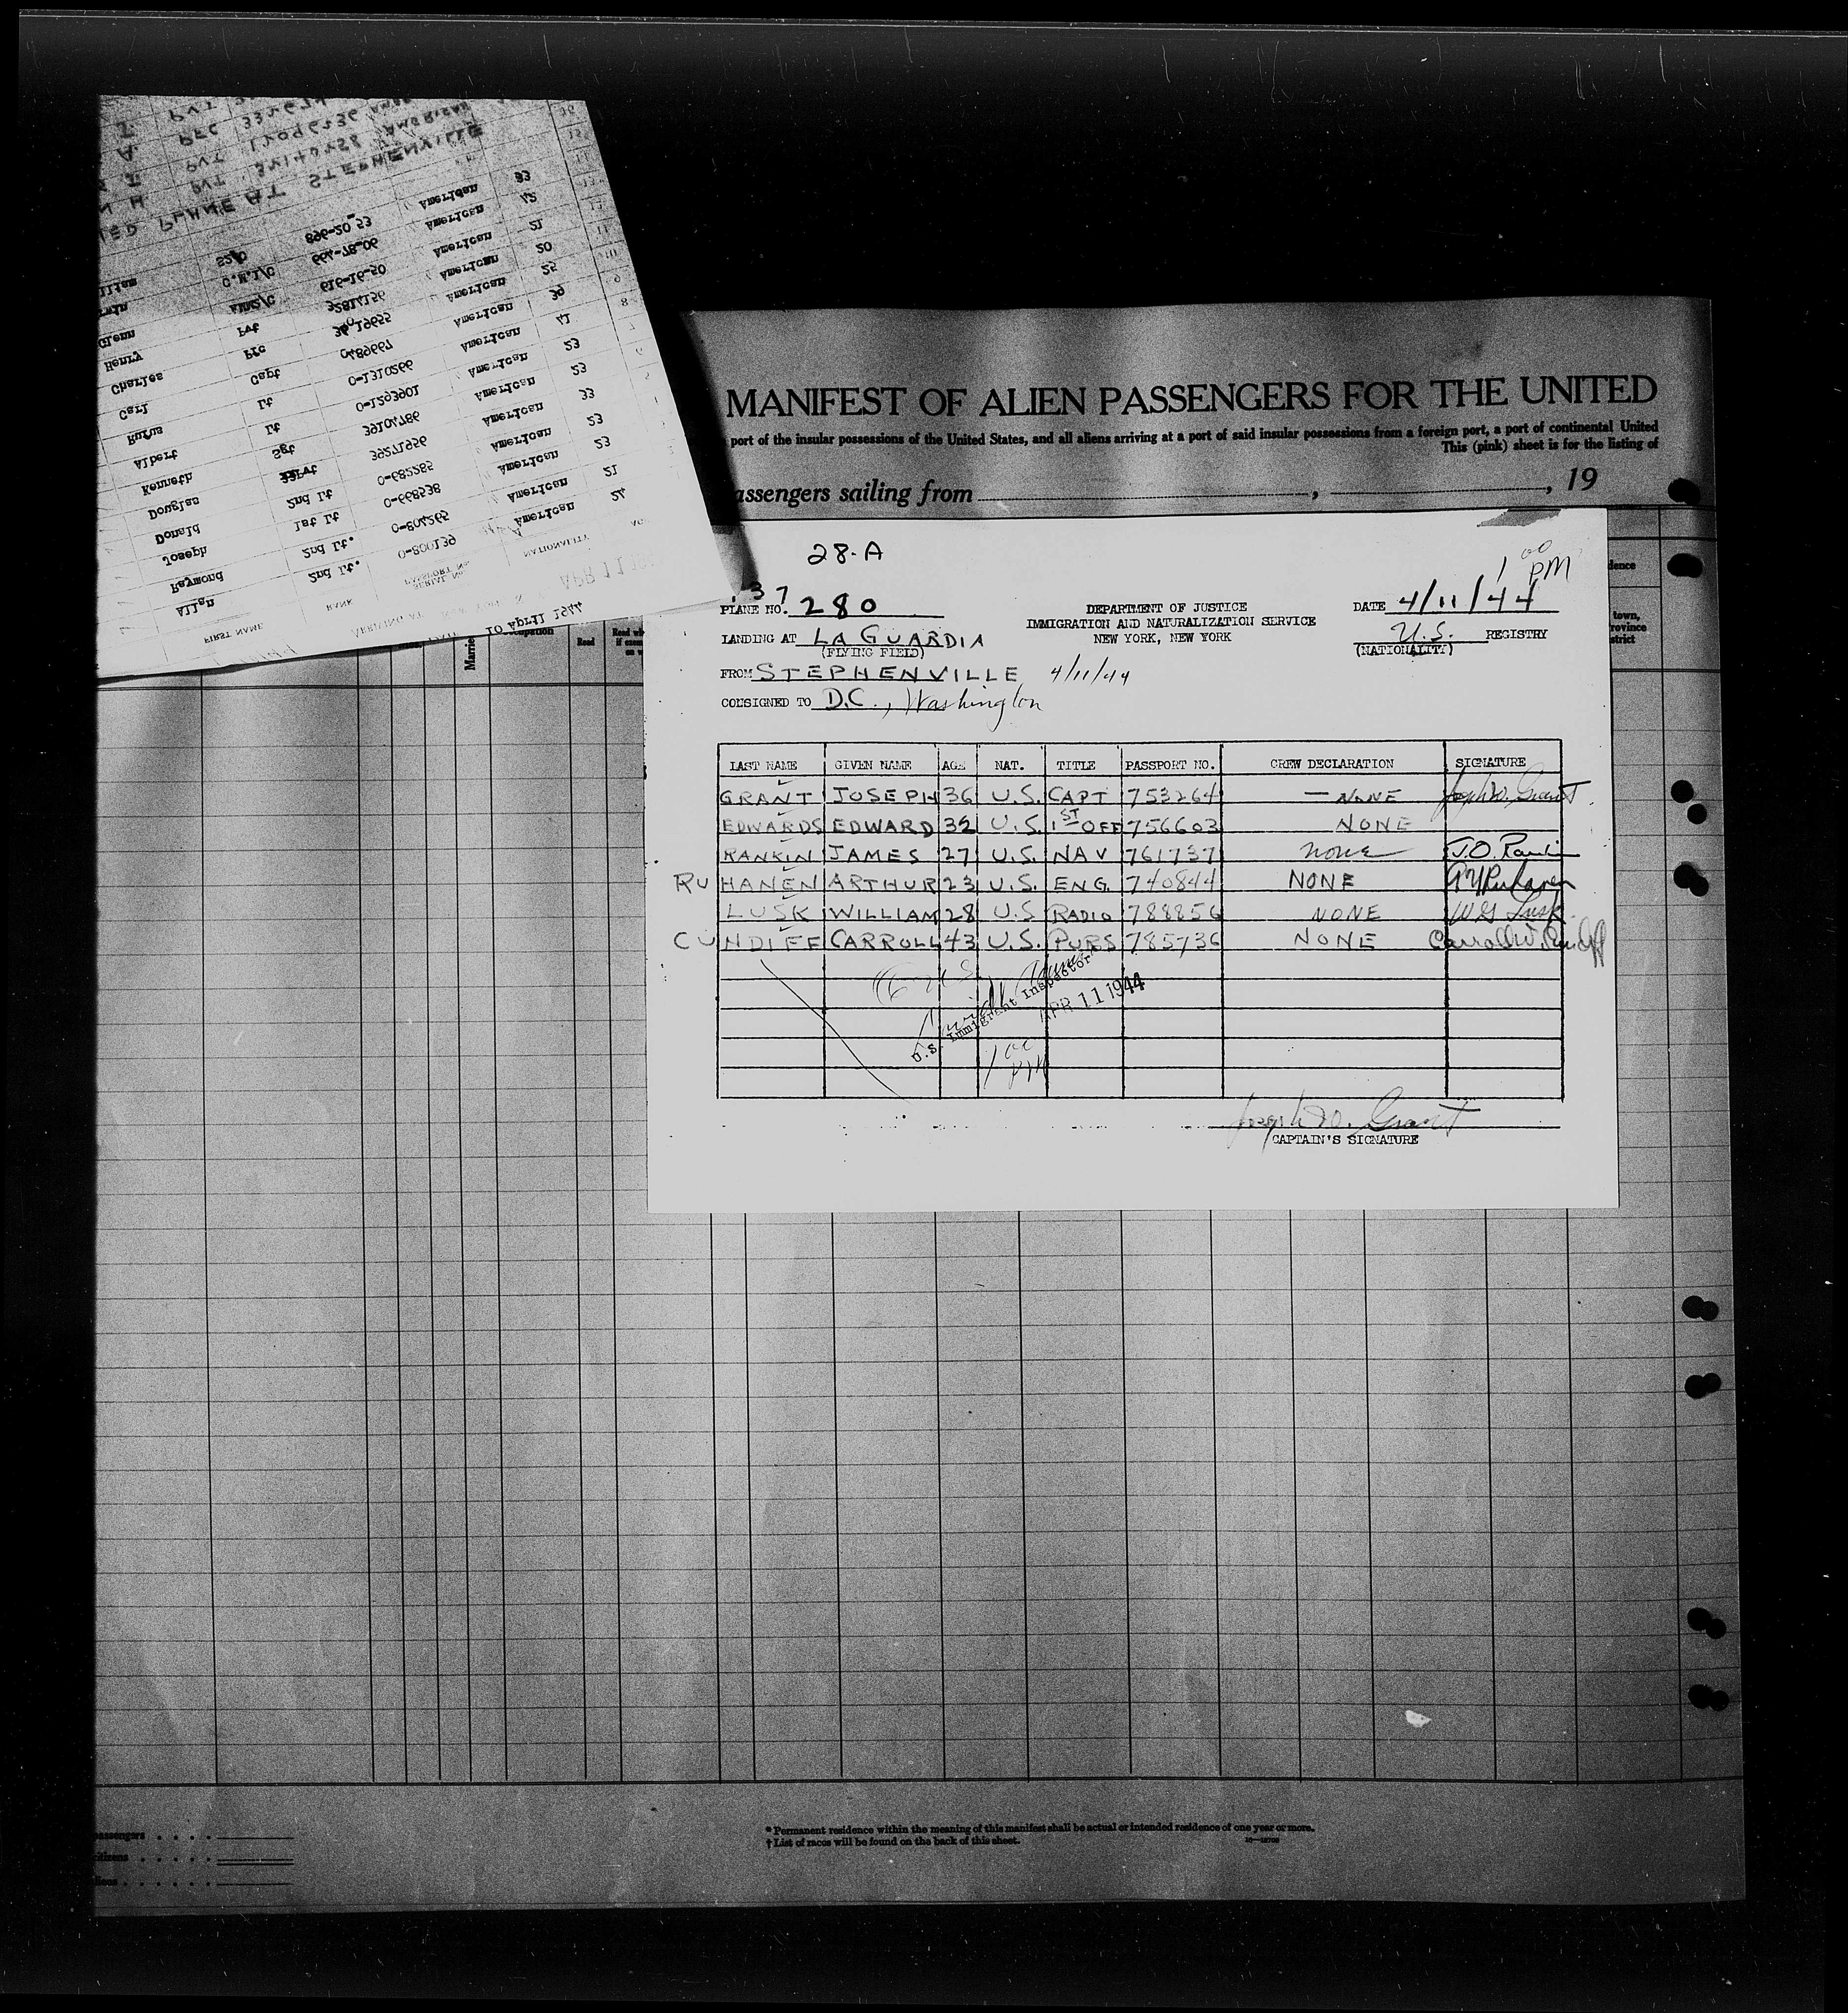 MANIFEST OF ALIEN PASSENGERS FOR THE UNITED
port of the insular possessions of the United States, and all aliens arriving at a port of said insular possessions from a foreign port, a port of continental United
This (pink) sheet is for the listing of
assengers sailing from , , 19
28-A
1 00 PM
137
PLANE NO. 280
DEPARTMENT OF JUSTICE
DATE 4/11/44
IMMIGRATION AND NATURALIZATION SERVICE
LANDING AT LA GUARDIA
NEW YORK, NEW YORK
U.S. REGISTRY
(FLYING FIELD)
(NATIONALITY)
FROM STEPHENVILLE 4/11/44
CONSIGNED TO D.C., Washington
LAST NAME GIVEN NAME AGE NAT. TITLE PASSPORT NO. CREW DECLARATION SIGNATURE
GRANT JOSEPH 36 U.S. CAPT 753264 — NONE Joseph W. Grant
EDWARDS EDWARD 32 U.S. 1ST OFF 756603 NONE
RANKIN JAMES 27 U.S. NAV 761737 none J.O. Rankin
RUHANEN ARTHUR 23 U.S. ENG. 740844 NONE A Y Ruhanen
LUSK WILLIAM 28 U.S RADIO 788856 NONE W G Lusk
CUNDIFF CARROLL 43 U.S. PURS 785736 NONE Carroll W. Cundiff
6 US
U.S. Immigrant Inspector
APR 11 1944
1 00 PM
Joseph W. Grant
CAPTAIN'S SIGNATURE
PLANE AT STEPHENVILLE
S2/C 896-20 53 American 33
C.M.1/C 664-78-06 American 42
Glenn AMM2/C 616-16-50 American 21
Henry Pvt 32814156 American 20
Charles Pfc American 25
Carl Capt 0489667 American 39
Rufus Lt 0-1310266 American 41
Albert Lt 0-1293901 American 23
Kenneth Sgt 39104786 American 23
Douglas Pvt 39271956 American 33
Donald 2nd Lt 0-682285 American 23
Joseph 1st Lt 0-668538 American 23
Raymond 2nd Lt. 0-804265 American 21
Allan 2nd Lt. 0-800139 American 24
FIRST NAME RANK SERIAL No. PASSPORT No. NATIONALITY
ARRIVING AT
APR 11
10 April 1944
Read
* Permanent residence within the meaning of this manifest shall be actual or intended residence of one year or more.
† List of races will be found on the back of this sheet.